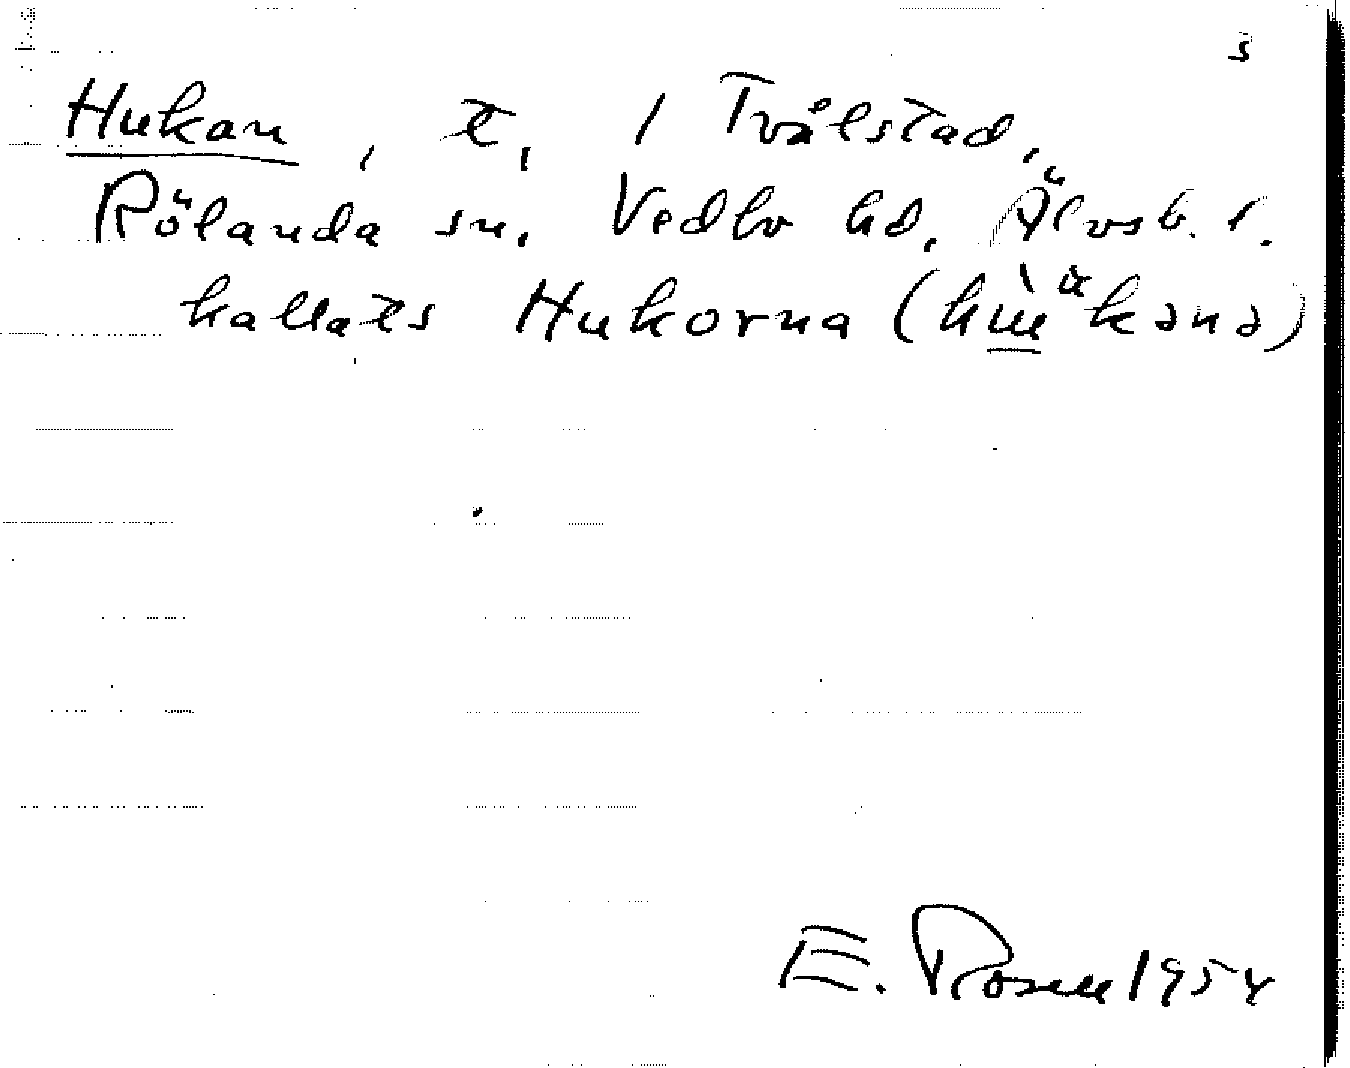 s
Hukan, t, / Tvålstad,
Rölanda sn. Vedbo hd, Älvsb. l.
kallats Hukorna (
E. Rosell 1954